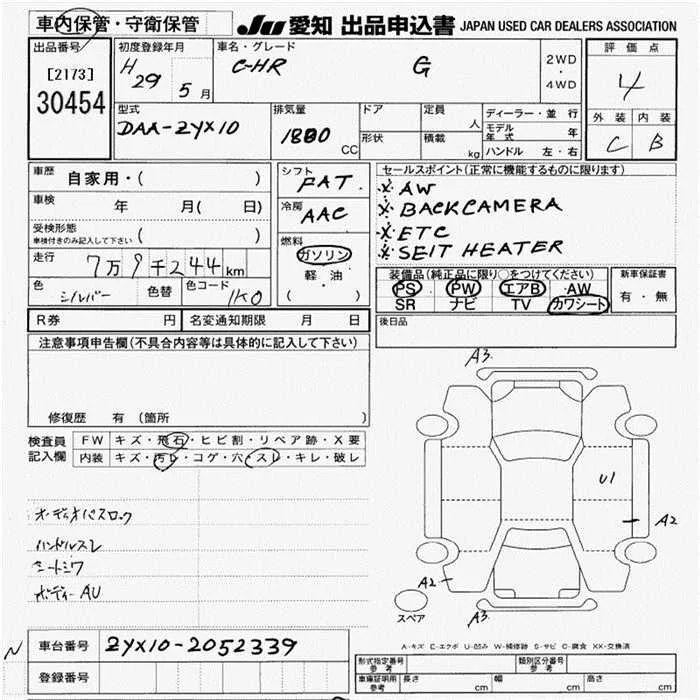 車内保管・守衛保管
JU 愛知 出品申込書 JAPAN USED CAR DEALERS ASSOCIATION
出品番号
[2173]
30454
初度登録年月
H 29 5 月
車名・グレード
C-HR G
2WD
・
4WD
評価点
4
外装 内装
C B
型式
DAA-ZYX10
排気量
1800 CC
ドア
形状
定員
人
積載
kg
ディーラー・並行
モデル年式 年
ハンドル 左・右
車歴
自家用・( )
車検 年 月( 日)
受検形態
車検付きのみ記入して下さい ( )
走行
7万9千244km
色 シルバー 色替 色コード 1K0
シフト
FAT
冷房
AAC
燃料
ガソリン
軽・油
( )
セールスポイント(正常に機能するものに限ります)
※AW
※BACKCAMERA
※ETC
※SEIT HEATER
装備品(純正品に限り○をつけてください)
PS PW エアB AW
SR ナビ TV カワシート
新車保証書
有・無
R券 円 名変通知期限 月 日
後日品
注意事項申告欄(不具合内容等は具体的に記入して下さい)
修復歴 有(箇所 )
検査員
記入欄
FW キズ・飛石・ヒビ割・リペア跡・X要
内装 キズ・汚レ・コゲ・穴・スレ・キレ・破レ
オーディオパスロック
ハンドルスレ
シートシワ
ボディーAU
A3
U1
A2
A2
A3
スペア
A-キズ E-エクボ U-凹み W-補修跡 S-サビ C-腐食 XX-交換済
N
車台番号 ZYX10-2052339
登録番号
形式指定番号
参考
類別区分番号
参考
車庫証明用
参考
長さ cm 幅 cm 高さ cm